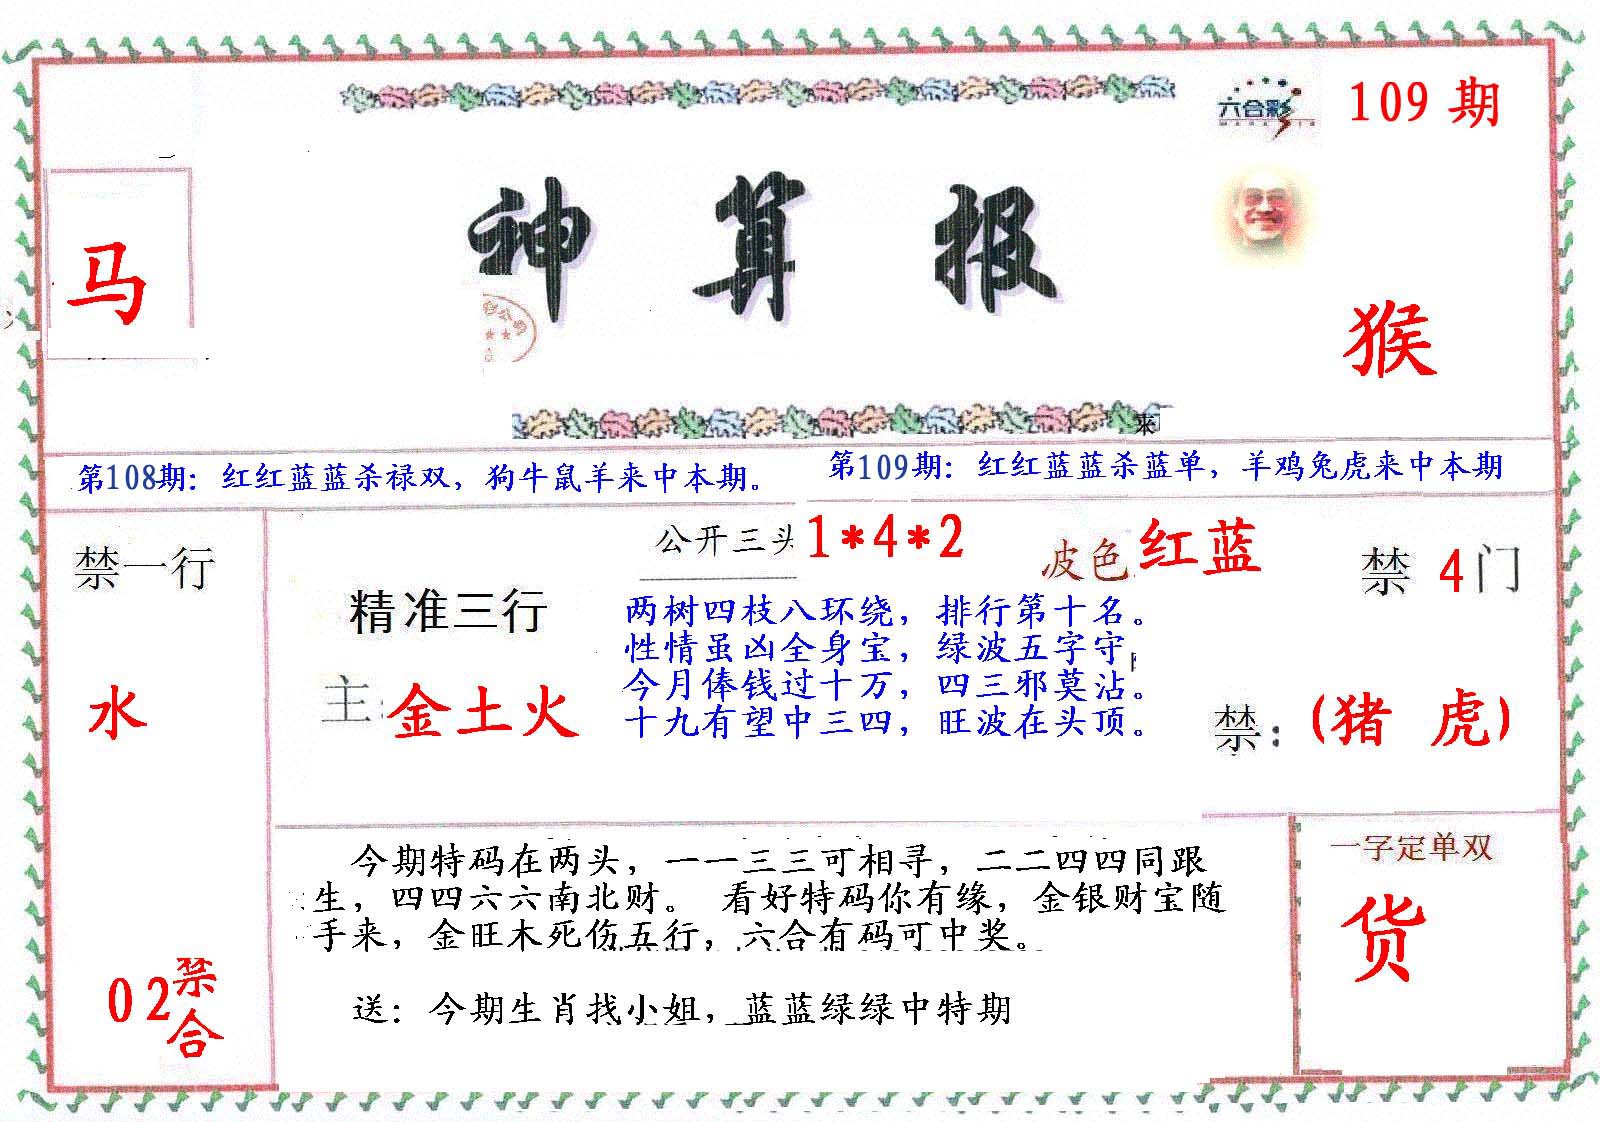 六合彩
109 期
马
神 算 报
猴
来
第108期：红红蓝蓝杀禄双，狗牛鼠羊来中本期。
第109期：红红蓝蓝杀蓝单，羊鸡兔虎来中本期
禁一行
水
02禁
合
精准三行
主:金土火
公开三头 1*4*2
波色 红蓝
两树四枝八环绕，排行第十名。
性情虽凶全身宝，绿波五字守
今月俸钱过十万，四三邪莫沾。
十九有望中三四，旺波在头顶。
禁 4 门
禁：(猪 虎)
今期特码在两头，一一三三可相寻，二二四四同跟
生，四四六六南北财。 看好特码你有缘，金银财宝随
手来，金旺木死伤五行，六合有码可中奖。
送：今期生肖找小姐，蓝蓝绿绿中特期
一字定单双
货